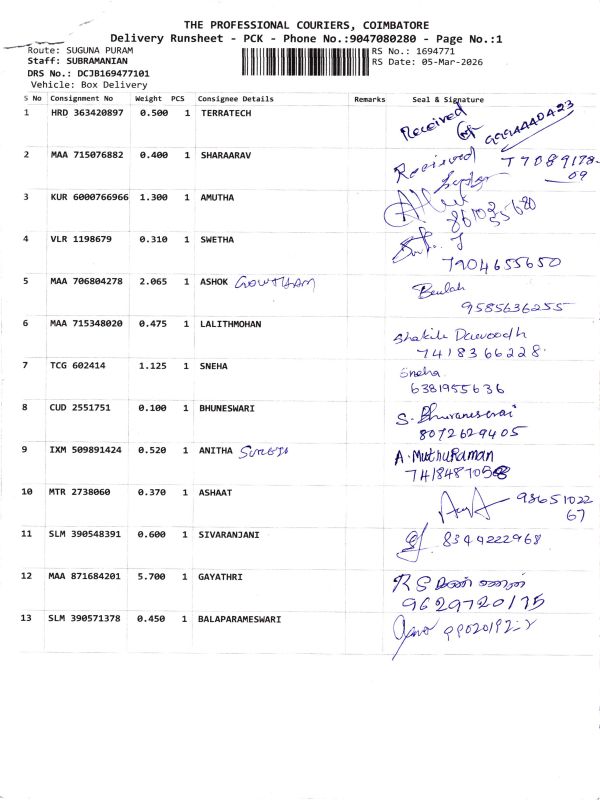 THE PROFESSIONAL COURIERS, COIMBATORE
Delivery Runsheet - PCK - Phone No.:9047080280 - Page No.:1
Route: SUGUNA PURAM
RS No.: 1694771
Staff: SUBRAMANIAN
RS Date: 05-Mar-2026
DRS No.: DCJB169477101
Vehicle: Box Delivery
S No Consignment No Weight PCS Consignee Details Remarks Seal & Signature
1 HRD 363420897 0.500 1 TERRATECH Received
2 MAA 715076882 0.400 1 SHARAARAV Received
3 KUR 6000766966 1.300 1 AMUTHA
4 VLR 1198679 0.310 1 SWETHA
7904655650
5 MAA 706804278 2.065 1 ASHOK GOWTHAM Beulah
9585636255
6 MAA 715348020 0.475 1 LALITHMOHAN Shakila Dawoodh
7418366228
7 TCG 602414 1.125 1 SNEHA Sneha
6381955636
8 CUD 2551751 0.100 1 BHUNESWARI S. Bhuvaneswari
8072629405
9 IXM 509891424 0.520 1 ANITHA A. MuthuRaman
10 MTR 2738060 0.370 1 ASHAAT 98651022
67
11 SLM 390548391 0.600 1 SIVARANJANI 8344222968
12 MAA 871684201 5.700 1 GAYATHRI
9629720175
13 SLM 390571378 0.450 1 BALAPARAMESWARI